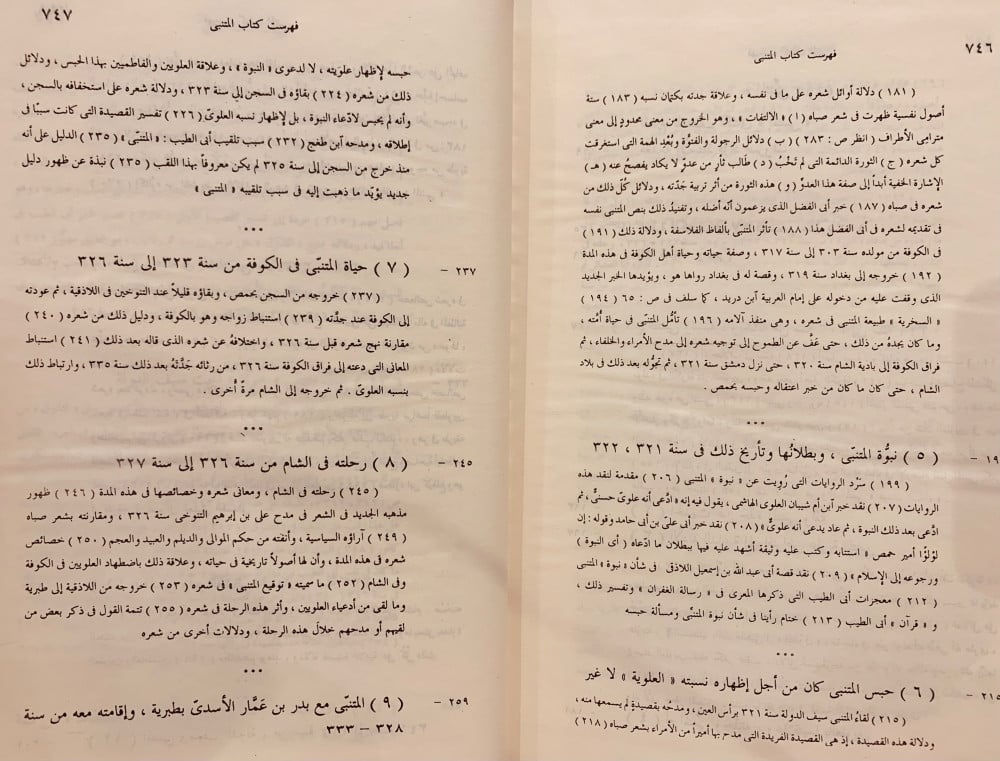 ٧٤٦
فهرست كتاب المتنبى
( ١٨١ ) دلالة أوائل شعره على ما فى نفسه ، وعلاقة جدته بكتمان نسبه ( ١٨٣ ) ستة
أصول نفسية ظهرت فى شعر صباه ( ا ) « الالتفات » ، وهو الخروج من معنى محدودٍ إلى معنى
مترامِى الأطراف ( انظر ص : ٢٨٣ ) ( ب ) دلائل الرجولة والفتوَّة وبُعْدِ الهمة التى استغرقت
كل شعره ( ج ) الثورة الدائمة التى لم تَخْبُ ( د ) طَالب ثأرٍ من عدوٍّ لا يكاد يفصحُ عنه ( هـ )
الإشارة الخفية أبداً إلى صفة هذا العدوِّ ( و ) هذه الثورة من أثر تربية جَدّته ، ودلائل كُلّ ذلك من
شعره فى صباه ( ١٨٧ ) خبر أبى الفضل الذى يزعمون أنّه أضله ، وتفنيدُ ذلك بنص المتنبى نفسه
فى تقديمه لشعره فى أبى الفضل هذا ( ١٨٨ ) تأثر المتنبّى بألفاظ الفلاسفة ، ودلالة ذلك ( ١٩١ )
فى الكوفة من مولده سنة ٣٠٣ إلى سنة ٣١٧ ، وصفة حياته وحياة أهل الكوفة فى هذه المدة
( ١٩٢ ) خروجه إلى بغداد سنة ٣١٩ ، وقصة له فى بغداد رواها هو ، ويؤيدها الخبر الجديد
الذى وقفت عليه من دخوله على إمام العربية آبن دريد ، كما سلف فى ص : ٦٥ ( ١٩٤ )
« السخرية » طبيعة المتنبى فى شعره ، وهى منفذ آلامه ( ١٩٦ ) تأمُّل المتنبّى فى حياة أمّته ،
وما كان يجدُه من ذلك ، حتى عَفَّ عن الطموح إلى توجيه شعره إلى مدح الأمراء والخلفاء ، ثم
فراق الكوفة إلى بادية الشام سنة ٣٢٠ ، حتى نزل دمشق سنة ٣٢١ ، ثم تجوُّله بعد ذلك فى بلاد
الشام ، حتى كان ما كان من خبر اعتقاله وحبسه بحمص .
•••
( ٥ ) نبوُّة المتنبّى ، وبطلانُها وتأريخ ذلك فى سنة ٣٢١ ، ٣٢٢
( ١٩٩ ) سرْد الروايات التى رُوِيت عن « نبوة » المتنبى ( ٢٠٦ ) مقدمة لنقد هذه
الروايات ( ٢٠٧ ) نقد خبر آبن أم شيبان العلوى الهاشمى ، يقول فيه إنه « ادّعى أنه علوىّ حسنىٌّ ، ثم
ادّعى بعد ذلك النبوة ، ثم عاد يدعى أنه علوىٌّ » ( ٢٠٨ ) نقد خبر أبى علىّ بن أبى حامد وقوله : إن
لؤلؤا أمير حمص « استتابه وكتب عليه وثيقة أشهد عليه فيها ببطلان ما ادّعاه ( أى النبوة )
ورجوعه إلى الإسلام » ( ٢٠٩ ) نقد قصة أبى عبد الله بن إسمعيل اللاذقى فى شأن « نبوة » المتنبى
( ٢١٢ ) معجزات أبى الطيب التى ذكرها المعرى فى « رسالة الغفران » وتفسير ذلك ،
و « قرآن » أبى الطيب ( ٢١٣ ) ختام رأينا فى شأن نبوة المتنبّى ومسألة حبسه
•••
( ٦ ) حبس المتنبى كان من أجل إظهاره نسبته « العلوية » لا غير
٢١٥ -
( ٢١٥ ) لقاءُ المتنبى سيف الدولة سنة ٣٢١ برأس العين ، ومدحُه بقصيدةٍ لم يسمعها منه ،
ودلالة هذه القصيدة ، إذ هى القصيدة الفريدة التى مدح بها أميراً من الأمراء بشعر صباه ( ٢١٨ )
٧٤٧
فهرست كتاب المتنبى
حبسه لإظهار علويّته ، لا لدعوى « النبوة » ، وعلاقة العلويين والفاطميين بهذا الحبس ، ودلائل
ذلك من شعره ( ٢٢٤ ) بقاؤه فى السجن إلى سنة ٣٢٣ ، ودلالة شعره على استخفافه بالسجن ،
وأنه لم يحبس لادّعاء النبوة ، بل لإظهار نسبه العلوىّ ( ٢٢٦ ) تفسير القصيدة التى كانت سببًا فى
إطلاقه ، ومدحه آبن طغج ( ٢٣٢ ) سبب تلقيب أبى الطيب : « المتنبّى » ( ٢٣٥ ) الدليل على أنه
منذ خرج من السجن إلى سنة ٣٢٥ لم يكن معروفاً بهذا اللقب ( ٢٣٥ ) نبذة عن ظهور دليل
جديد يؤيّد ما ذهبت إليه فى سبب تلقيبه « المتنبى »
•••
٢٣٧ - ( ٧ ) حياة المتنبّى فى الكوفة من سنة ٣٢٣ إلى سنة ٣٢٦
( ٢٣٧ ) خروجه من السجن بحمص ، وبقاؤه قليلاً عند التنوخيين فى اللاذقية ، ثم عودته
إلى الكوفة عند جدَّته ( ٢٣٩ ) استنباط زواجه وهو بالكوفة ، ودليل ذلك من شعره ( ٢٤٠ )
مقارنة نهج شعره قبل سنة ٣٢٦ ، واختلافهُ عن شعره الذى قاله بعد ذلك ( ٢٤١ ) استنباط
المعانى التى دعته إلى فراق الكوفة سنة ٣٢٦ ، من رثائه جَدَّتَهُ بعد ذلك سنة ٣٣٥ ، وارتباط ذلك
بنسبه العلوىّ . ثم خروجه إلى الشام مرةً أُخرى .
•••
٢٤٥ - ( ٨ ) رحلته فى الشام من سنة ٣٢٦ إلى سنة ٣٢٧
( ٢٤٥ ) رحلته فى الشام ، ومعانى شعره وخصائصها فى هذه المدة ( ٢٤٦ ) ظهور
مذهبه الجديد فى الشعر فى مدح على بن إبرهيم التنوخى سنة ٣٢٦ ، ومقارنته بشعر صباه
( ٢٤٩ ) آراؤه السياسية ، وأنفته من حكم الموالى والديلم والعبيد والعجم ( ٢٥٠ ) خصائص
شعره فى هذه المدة ، وأن لها أصولاً تاريخية فى حياته ، وعلاقة ذلك باضطهاد العلويين فى الكوفة
وفى الشام ( ٢٥٢ ) ما سميته « توقيع المتنبى » فى شعره ( ٢٥٣ ) خروجه من اللاذقية إلى طبرية
وما لقى من أدعياء العلويين ، وأثر هذه الرحلة فى شعره ( ٢٥٥ ) تتمة القول فى ذكر بعض من
لقيهم أو مدحهم خلالَ هذه الرحلة ، ودلالات أخرى من شعره
•••
٢٥٩ - ( ٩ ) المتنبّى مع بدر بن عَمَّار الأسدىّ بطبرية ، وإقامته معه من سنة
٣٢٨ - ٣٣٣